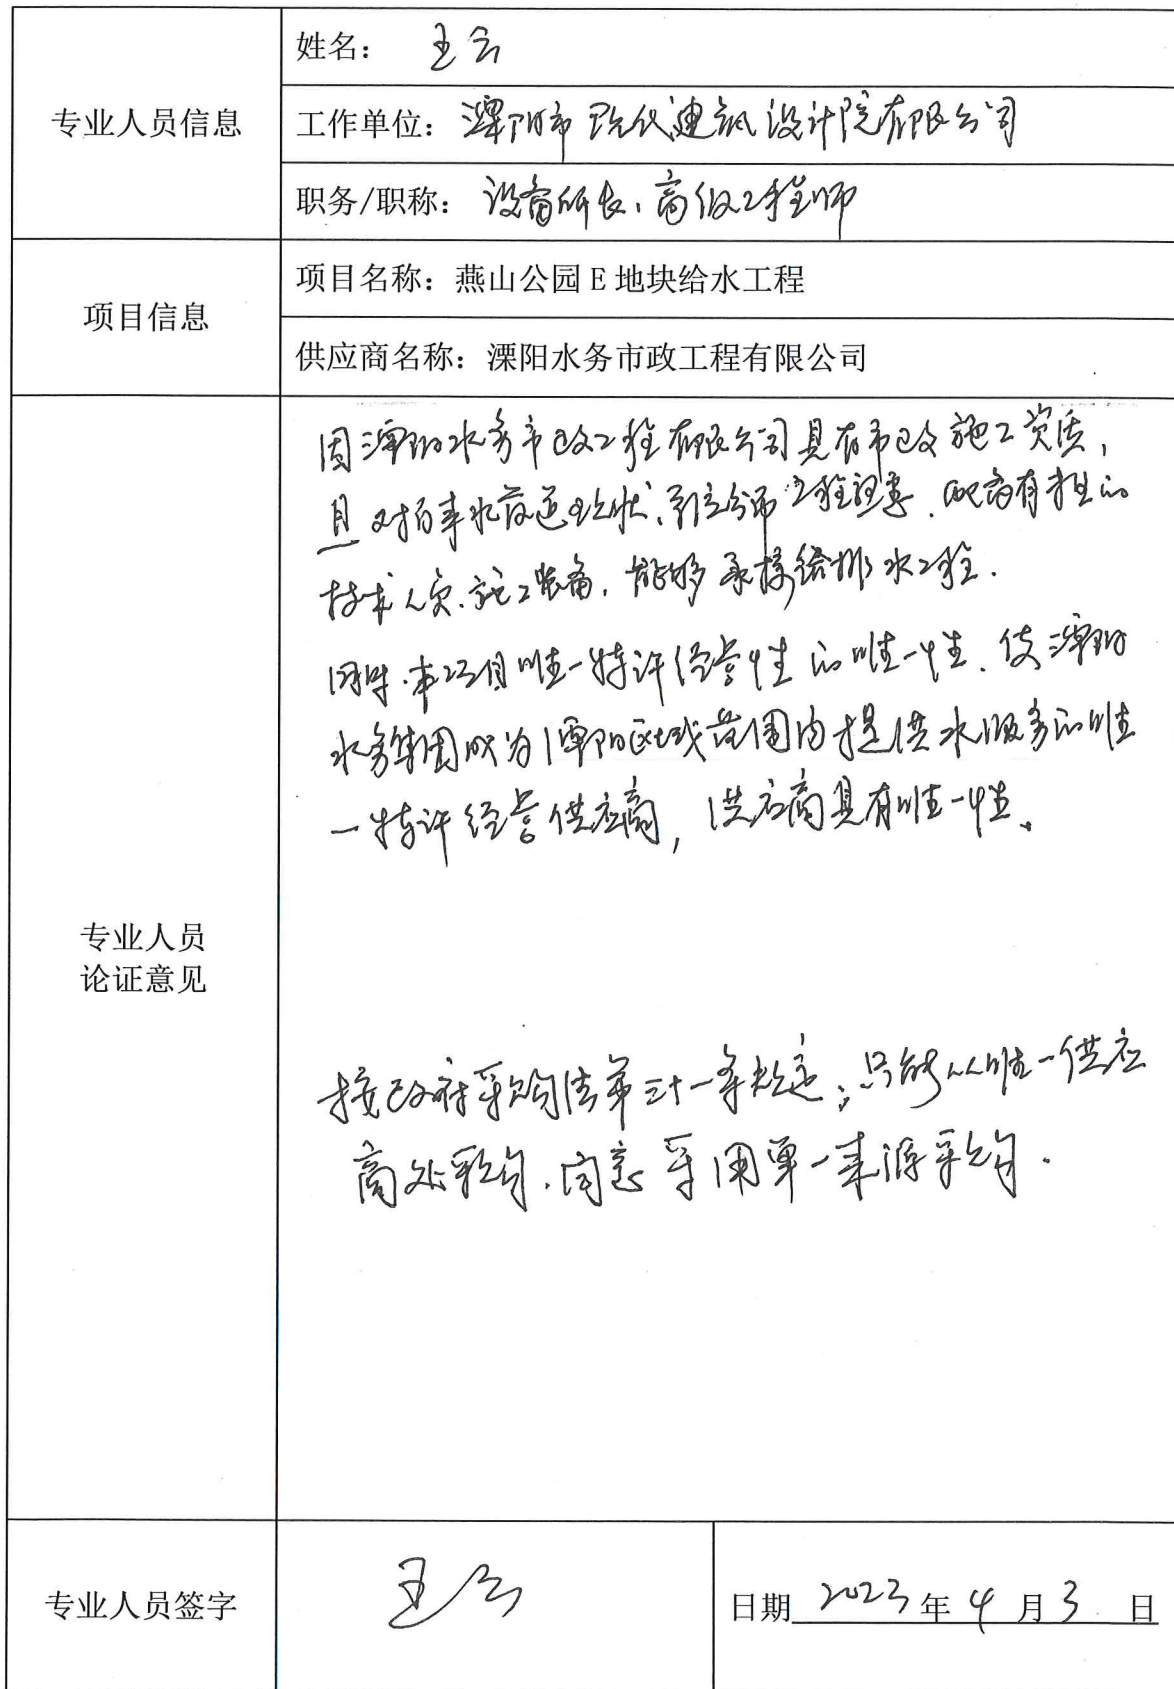 专业人员信息
姓名：王云
工作单位：溧阳市现代建筑设计院有限公司
职务/职称：设备所长、高级工程师
项目信息
项目名称：燕山公园 E 地块给水工程
供应商名称：溧阳水务市政工程有限公司
专业人员
论证意见
因溧阳水务市政工程有限公司具有市政施工资质，
且对自来水管道现状、分布 配备有 的
技术人员、施工装备，能够承接给排水工程.
同时，本项目唯一特许经营性的唯一性，使溧阳
水务集团成为溧阳区域范围内提供水服务的唯
一特许经营供应商，供应商具有唯一性。
按政府采购法第三十一条规定；只能从唯一供应
商处采购，同意采用单一来源采购.
专业人员签字
王云
日期 2023 年 4 月 3 日